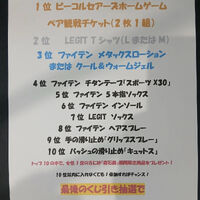 1位 ビーコルセアーズホームゲーム
ペア観戦チケット(2枚1組)
2位 LEGIT Tシャツ(LまたはM)
3位 ファイテン メタックスローション
または クール&ウォームジェル
4位 ファイテン チタンテープ「スポーツX30」
5位 ファイテン 5本指ソックス
6位 ファイテン インソール
7位 LEGIT ソックス
8位 ファイテン ヘアスプレー
9位 手の滑り止め「グリップスプレー」
10位 バッシュの滑り止め「キュットス」
10位以内に入れなくても!
最後のくじ引き抽選で